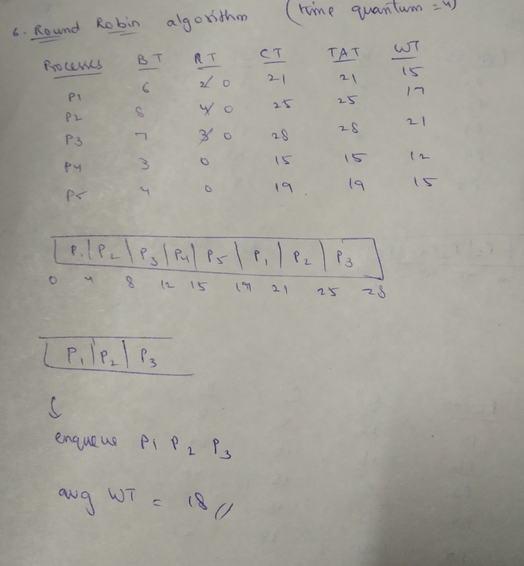 6. Round Robin algorithm (time quantum = 4)
Processes BT RT CT TAT WT
P1 6 2 0 21 21 15
P2 8 4 0 25 25 17
P3 7 3 0 28 28 21
P4 3 0 15 15 12
P5 4 0 19 19 15
P1 P2 P3 P4 P5 P1 P2 P3
0 4 8 12 15 19 21 25 28
P1 P2 P3
enqueue P1 P2 P3
avg WT = 18 //